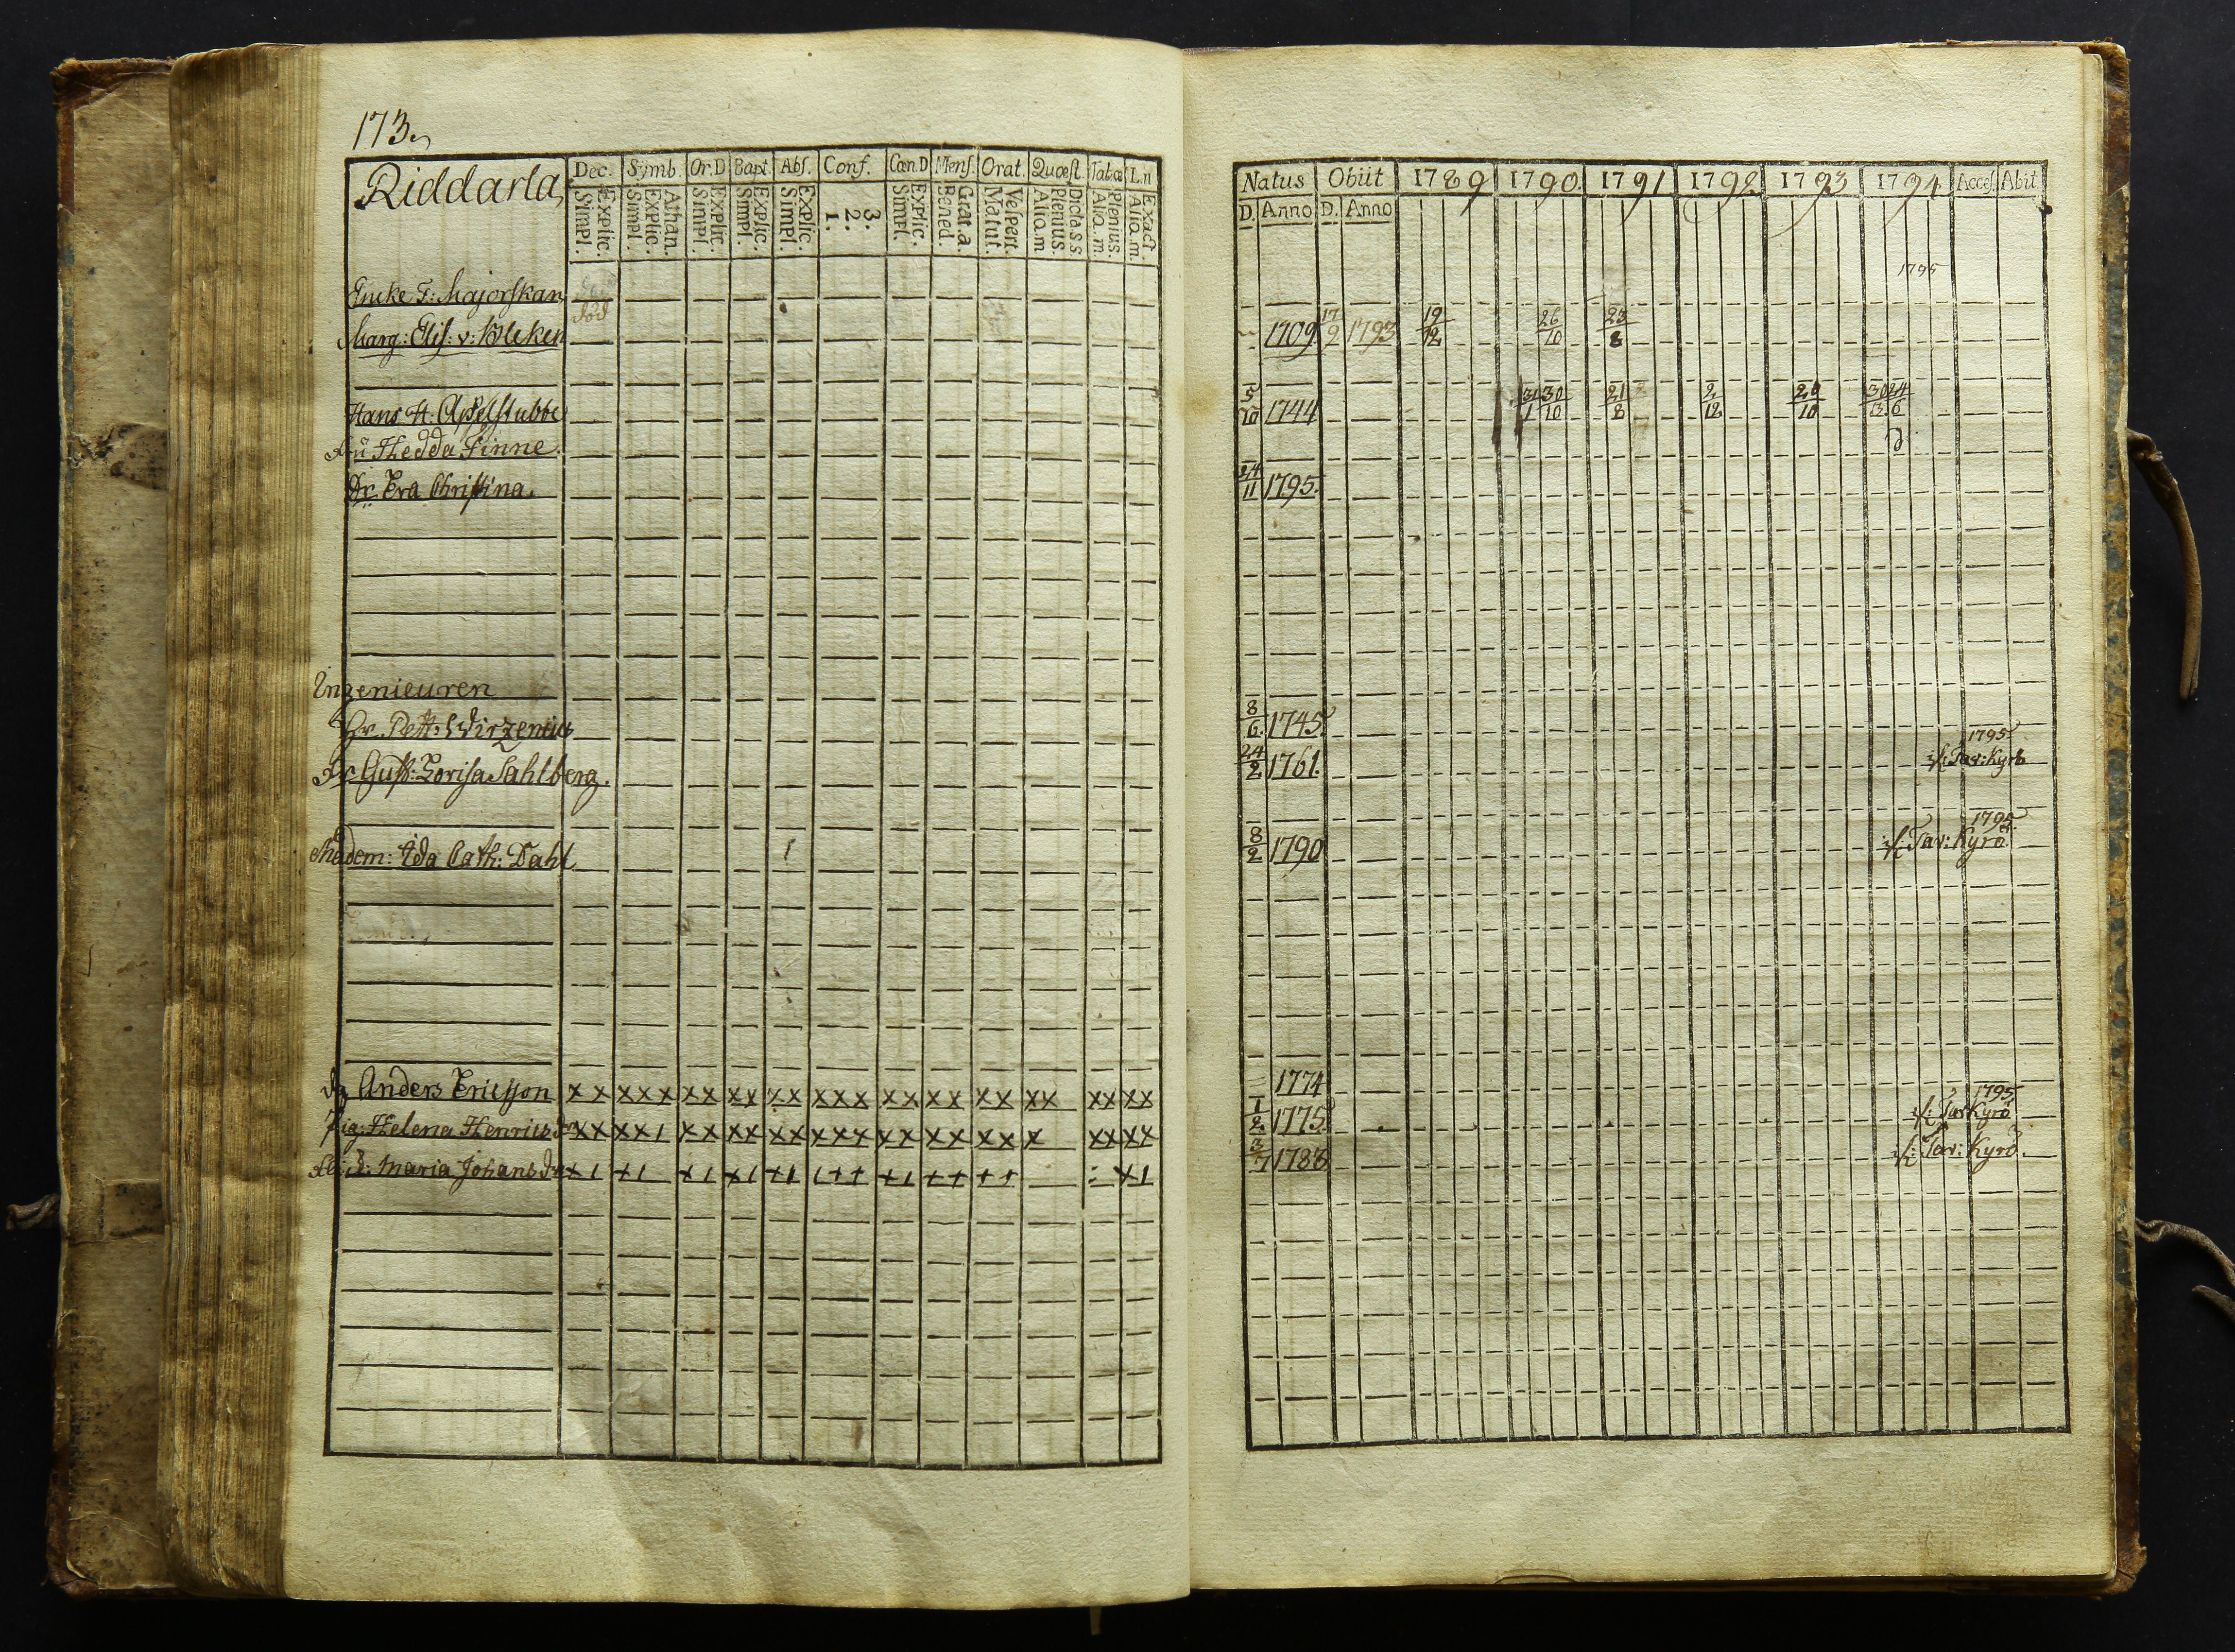 173.
Riddarla
Dec. Symb. Or.D Bapt. Abs. Conf. Cœn.D Mens. Orat. Quæst. Tabœ L.n
Explic. Simpl. Athan. Explic. Simpl. Explic. Simpl. Explic. Simpl. Explic. Simpl. 3. 2. 1. Explic. Simpl. Grat.a. Bened. Vespert. Matut. Dicta s.s Plenius. Aliq.m Plenius. Aliq.m. Exact. Aliq.m
Encke F: Majorskan
död
Marg: Elis: v: Bleken
Hans H. Appelstubbe
Fru Hedda Finne.
Dr. Eva Christina.
Ingenieuren
Hr. Pett: Wirzenius
Fr Gust: Lovisa Sahlberg.
Madem: Ida Cath: Dahl
Dg Anders Ericsson x x x x x x x x x x x x x x x x x x x x x x x x x x
Pig: Helena Henrics dr x x x x 1 x x x x x x x x x x x x x x x x x x x x
Maria Johans dr x 1 + 1 x 1 x 1 + 1 1 + + + 1 + + + + x 1
Natus Obiit 1789 1790. 1791 1792 1793 1794 Acces. Abit
D. Anno D. Anno
1795
1709 17/9 1793 19/12 26/10 23/8
5/10 1744 31/1 30/10 21/8 2/12 20/10 30/3 24/6
24/11 1795.
8/6 1745
24/2 1761. 1795 Tav: Kyrö
8/2 1790 1795 Tav: Kyrö
1774
1/2 1775 1795 Tav Kyrö
3/7 1788 Tav: Kyrö.